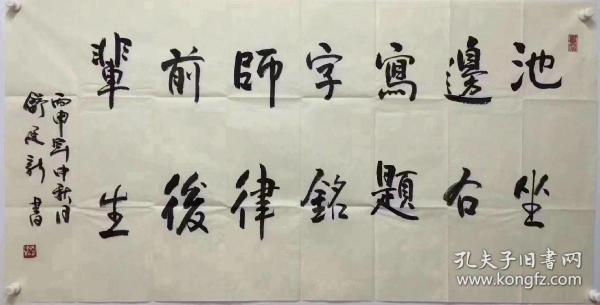 池邊寫字師前輩
坐右題銘律後生
丙申年中秋月
新書
孔夫子旧書网
www.kongfz.com